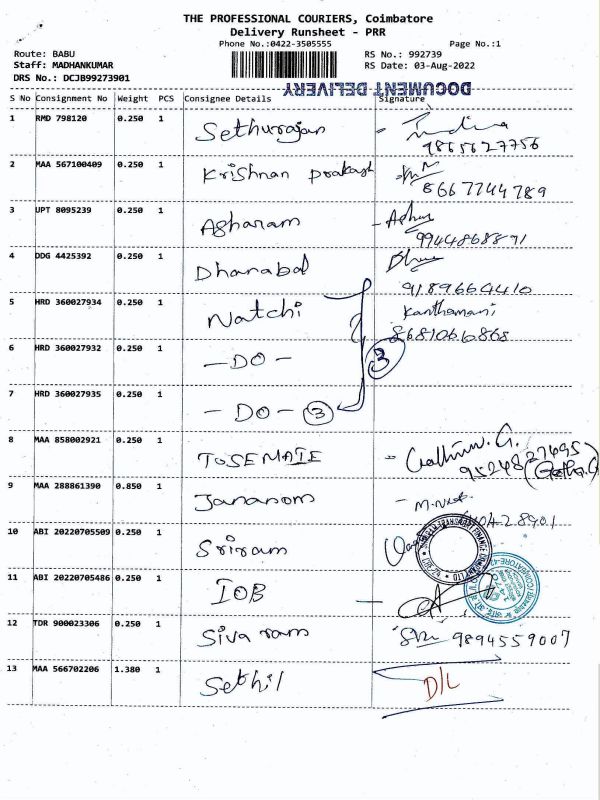 THE PROFESSIONAL COURIERS, Coimbatore
Delivery Runsheet - PRR
Phone No.:0422-3505555
Page No.:1
Route: BABU
RS No.: 992739
Staff: MADHANKUMAR
RS Date: 03-Aug-2022
DRS No.: DCJB99273901
DOCUMENT DELIVERY
S No Consignment No Weight PCS Consignee Details Signature
1 RMD 798120 0.250 1 Sethurajan - Indira
9865627756
2 MAA 567100409 0.250 1 Krishnan prakash
8667744789
3 UPT 8095239 0.250 1 Agharam
9944868891
4 DDG 4425392 0.250 1 Dhanabal
9189664410
5 HRD 360027934 0.250 1 Natchi Kanthamani
8681066868
6 HRD 360027932 0.250 1 - DO - 3
7 HRD 360027935 0.250 1 - DO - 3
8 MAA 858002921 0.250 1 TOSEMATE
9524827495
9 MAA 288861390 0.850 1 Jananom -
10 ABI 20220705509 0.250 1 Sriram
11 ABI 20220705486 0.250 1 IOB -
12 TDR 900023306 0.250 1 Siva ram 9894559007
13 MAA 566702206 1.380 1 Sethil D/L